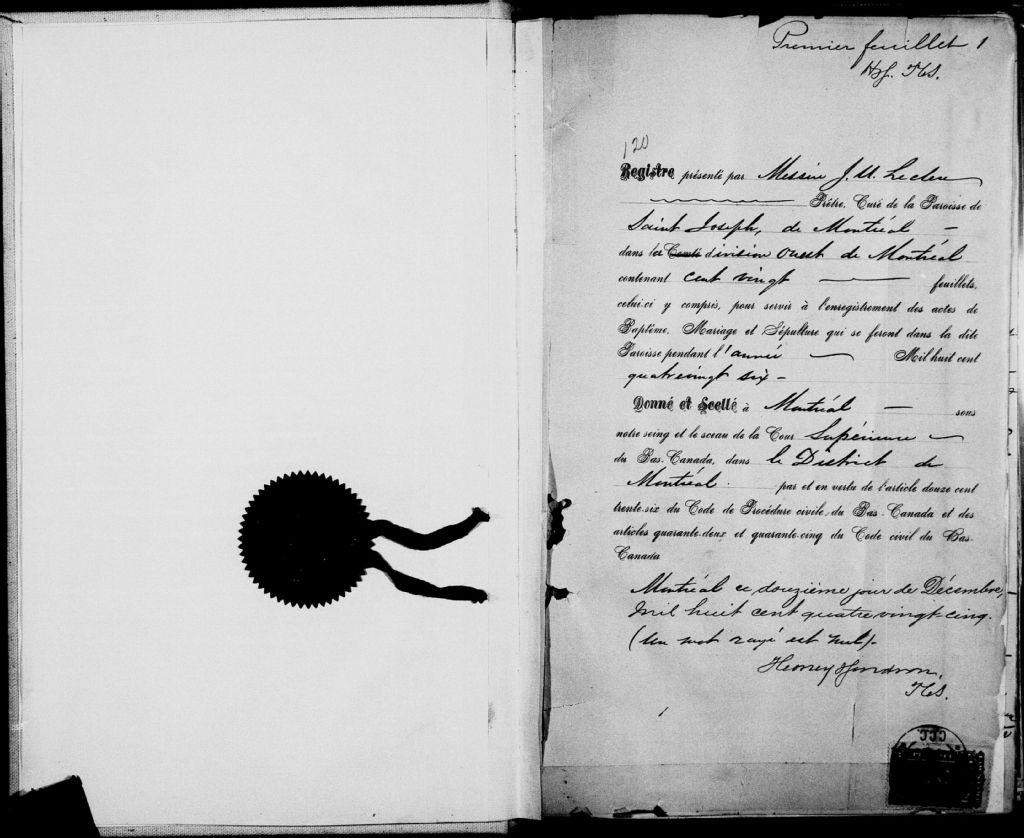 Premier feuillet 1
120
Registre présenté par Messire J. U. Leclerc
Prêtre, Curé de la Paroisse de
Saint Joseph, de Montréal -
dans la Comté division ouest de Montréal
contenant cent vingt feuillets,
celui-ci y compris, pour servir à l'enregistrement des actes de
Baptême, Mariage et Sépulture qui se feront dans la dite
Paroisse pendant l'année Mil huit cent
quatrevingt six -
Donné et Scellé à Montréal - sous
notre seing et le sceau de la Cour Supérieure
du Bas-Canada, dans le District de
Montréal. par et en vertu de l'article douze cent
trente-six du Code de Procédure civile du Bas-Canada et des
articles quarante-deux et quarante-cinq du Code civil du Bas-
Canada
Montréal ce douzième jour de Décembre,
Mil huit cent quatre vingt cinq.
(Un mot rayé est nul)-
Henry
CCC